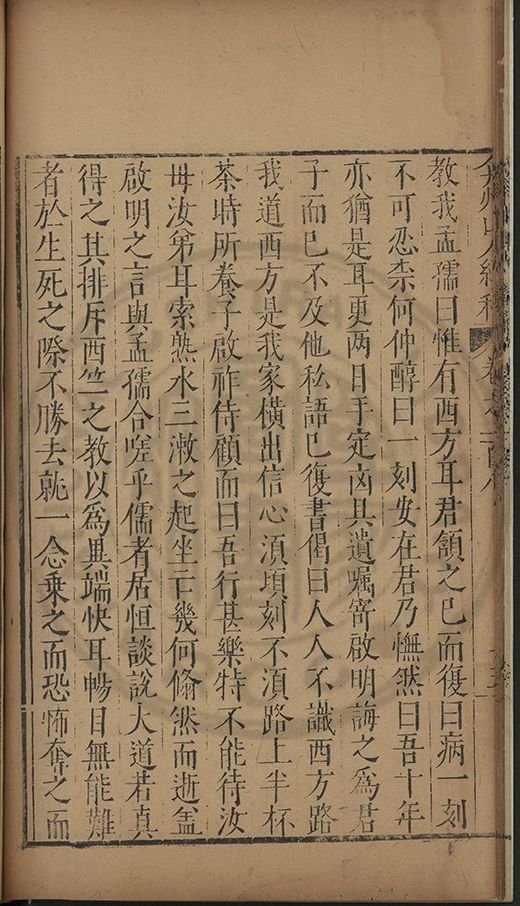 弇州山人續稿 卷之一百
教我孟孺曰惟有西方耳君頷之已而復曰病一刻
不可忍柰何仲醇曰一刻安在君乃憮然曰吾十年
亦猶是耳更两日手定凶具遺嘱寄啟明誨之為君
子而已不及他私語已復書偈曰人人不識西方路
我道西方是我家橫出信心湏頃刻不湏路上半杯
茶時所養子啟祚侍顧而曰吾行甚樂特不能待汝
毋汝弟耳索熟水三漱之起坐亡幾何翛然而逝盖
啟明之言與孟孺合嗟乎儒者居恒談說大道若真
得之其排斥西竺之教以為異端快耳暢目無能難
者於生死之際不勝去就一念乗之而恐怖奪之而